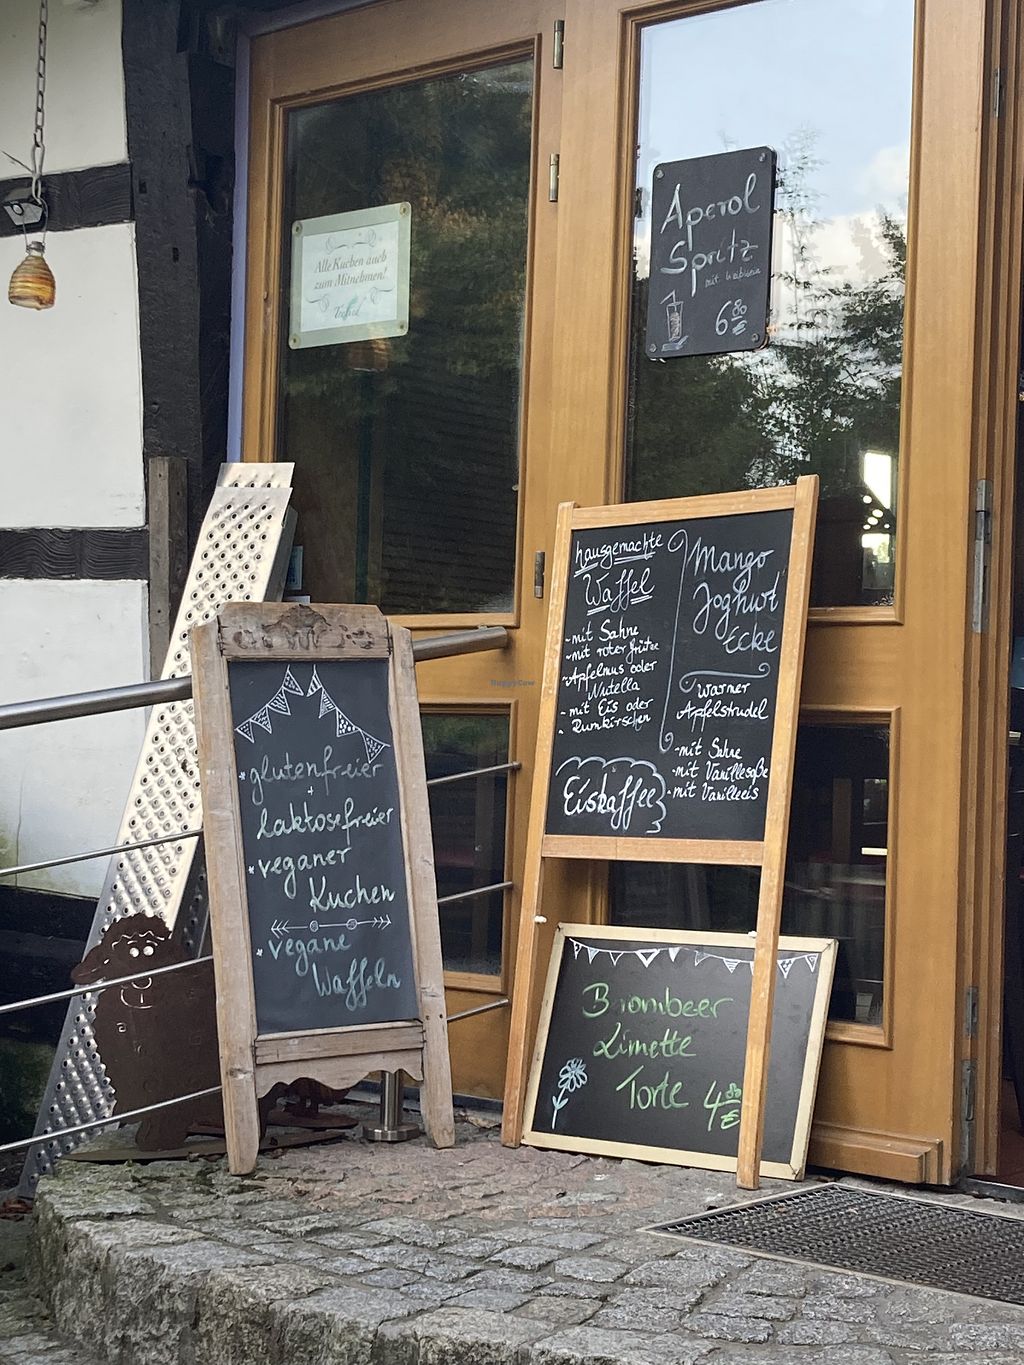 Alle Kuchen auch
zum Mitnehmen!
Aperol
Spritz
mit
6.80
€
hausgemachte
Waffel
- mit Sahne
- mit roter Grütze
- Apfelmus oder
Nutella
- mit Eis oder
- Rumkirschen
Eiskaffee
Mango
Joghurt
Ecke
Warmer
Apfelstrudel
- mit Sahne
- mit Vanillesoße
- mit Vanilleeis
* glutenfreier
+
laktosefreier
* veganer
Kuchen
* vegane
Waffeln
Brombeer
Limette
Torte 4.80
€
HappyCow